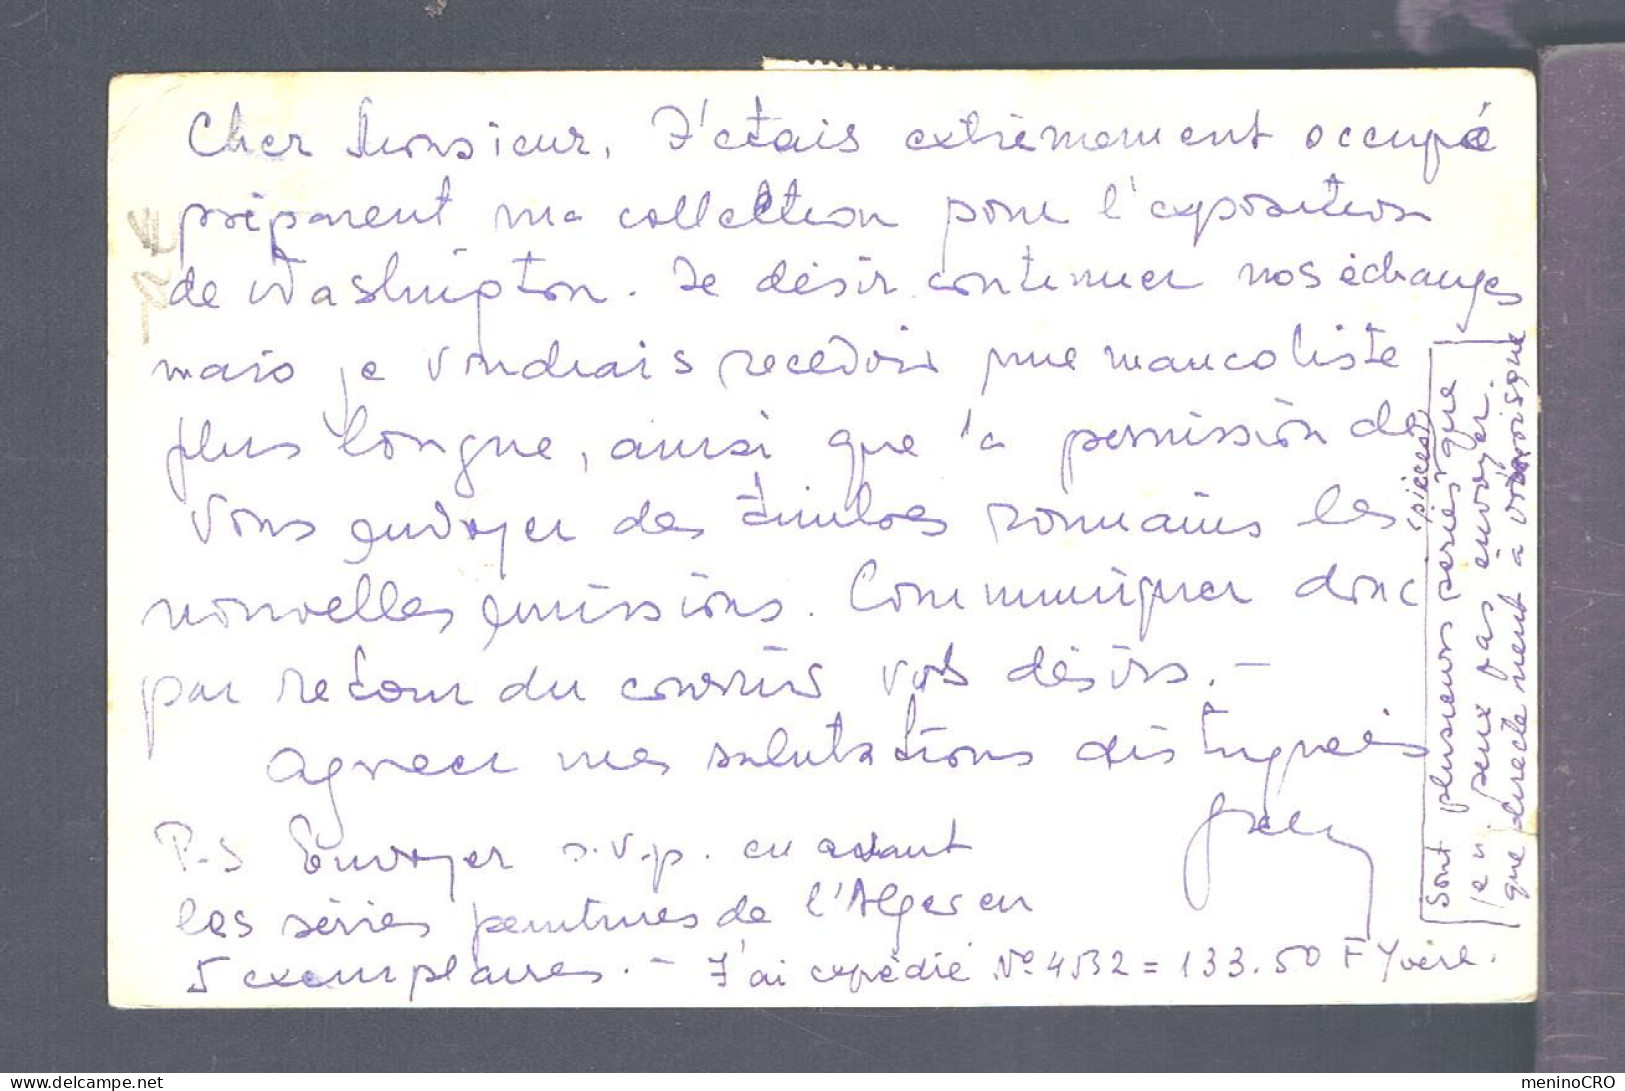 Cher Monsieur, J'etais extrèmement occupé
préparent ma collection pour l'exposition
de Washington. Je désir continuer nos échanges
mais je voudrais recevoir une mancoliste
plus longue, aussi que la permission de
Vous envoyer des timbres roumains les
nouvelles emissions. Communiquer donc
par retour du courrier vos désirs. —
Agreer mes salutations distinguées
P.S Envoyer s.v.p. en avant
les séries peintures de l'Alger en
5 exemplaires. — J'ai expédié No 4532 = 133.50 F Yvert.
(pièces)
Sont plusieurs series que
je n peux pas envoyer.
que directement à
meninoCRO